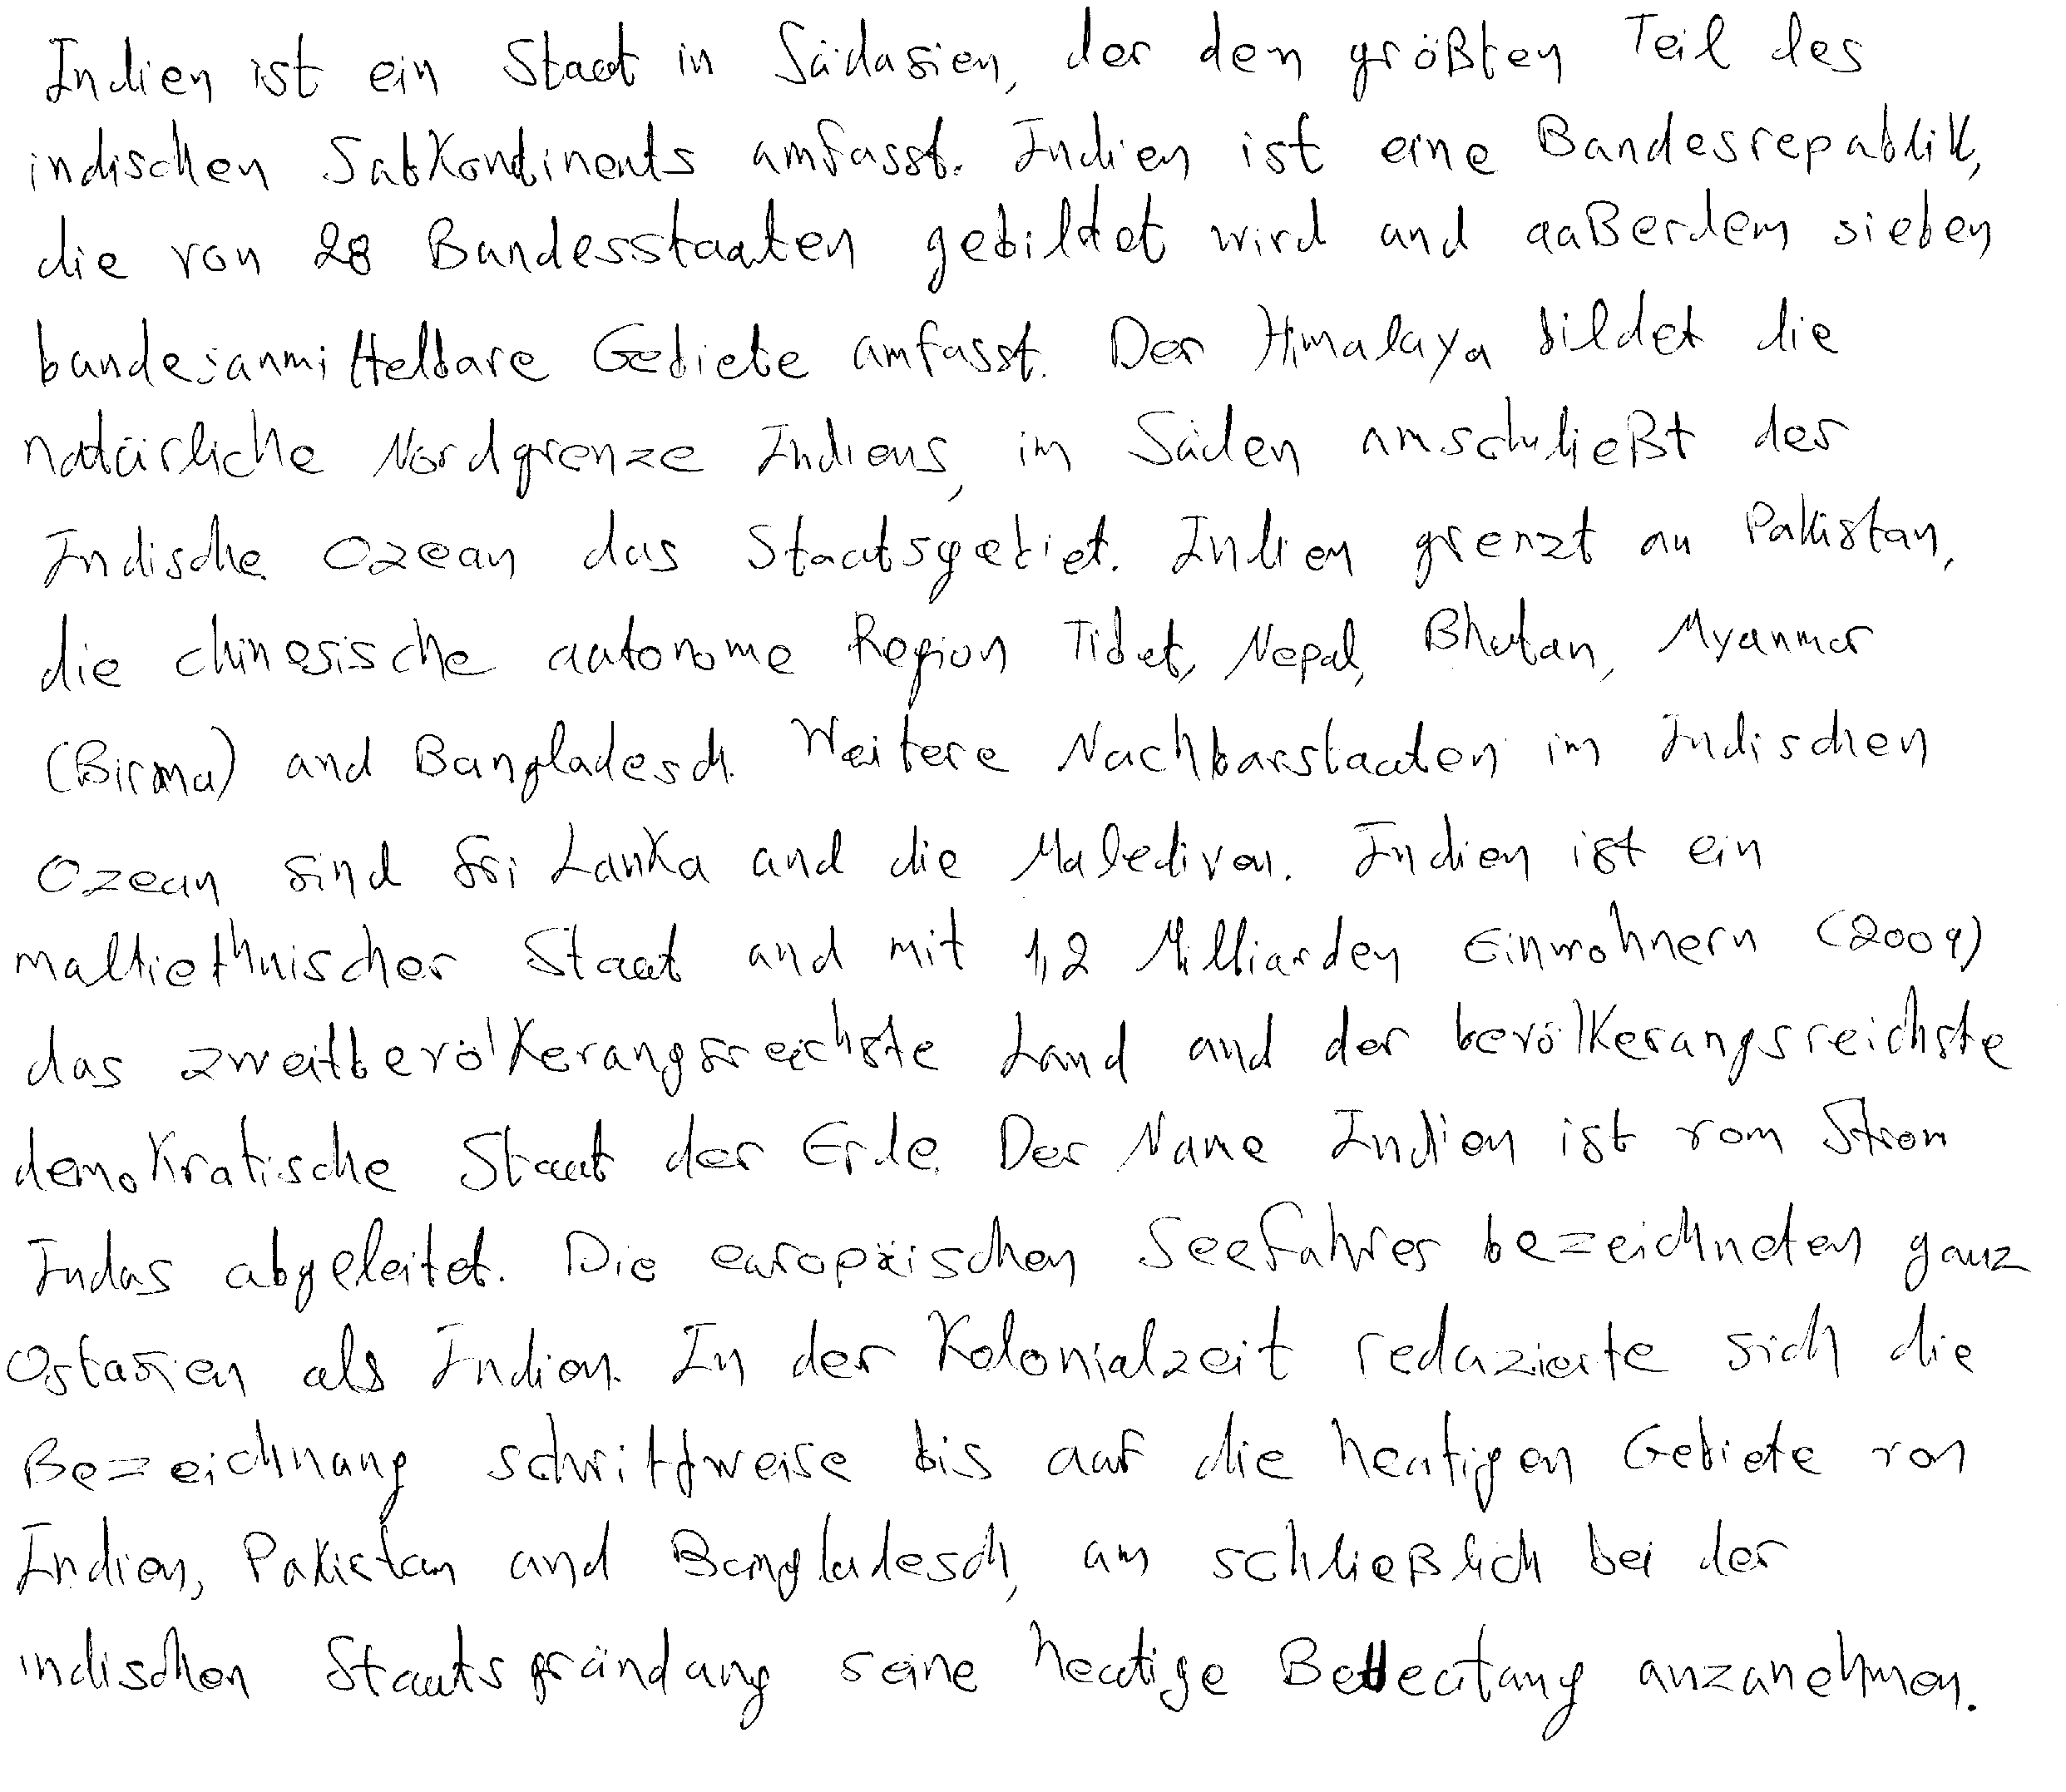 Indien ist ein Staat in Südasien, der den größten Teil des
indischen Subkontinents umfasst. Indien ist eine Bundesrepublik,
die von 28 Bundesstaaten gebildet wird und außerdem sieben
bundesunmittelbare Gebiete umfasst. Der Himalaya bildet die
natürliche Nordgrenze Indiens, im Süden umschließt der
Indische Ozean das Staatsgebiet. Indien grenzt an Pakistan,
die chinesische autonome Region Tibet, Nepal, Bhutan, Myanmar
(Birma) und Bangladesch. Weitere Nachbarstaaten im Indischen
Ozean sind Sri Lanka und die Malediven. Indien ist ein
multiethnischer Staat und mit 1,2 Milliarden Einwohnern (2009)
das zweitbevölkerungsreichste Land und der bevölkerungsreichste
demokratische Staat der Erde. Der Name Indien ist vom Strom
Indus abgeleitet. Die europäischen Seefahrer bezeichneten ganz
Ostasien als Indien. In der Kolonialzeit reduzierte sich die
Bezeichnung schrittweise bis auf die heutigen Gebiete von
Indien, Pakistan und Bangladesch, um schließlich bei der
indischen Staatsgründung seine heutige Bedeutung anzunehmen.